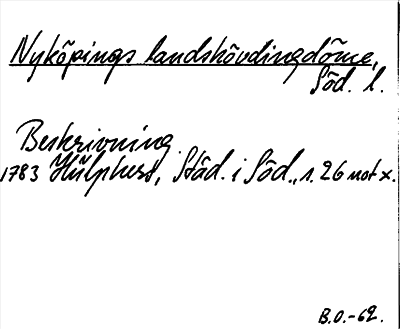 Nyköpings landshövdingdöme,
Söd. l.
Beskrivning.
1783 Hülphers, Städ. i Söd., s. 26 not x.
B.O.-62.